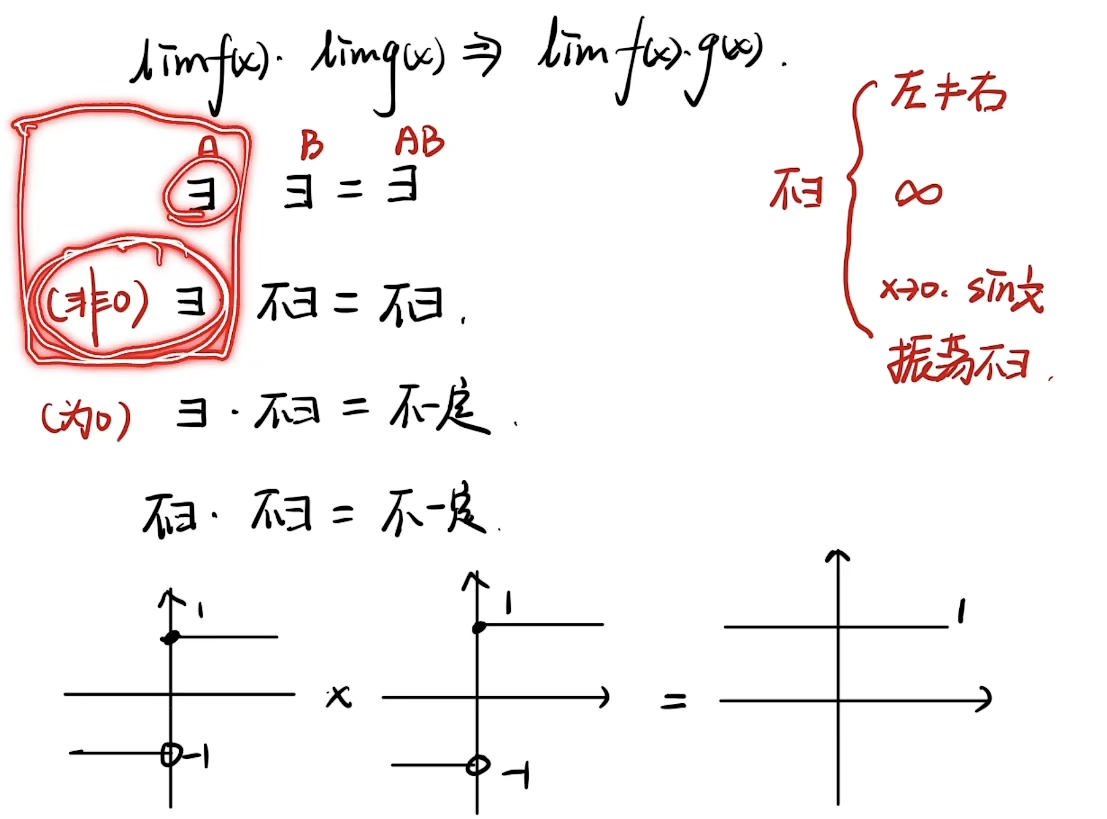 lim f(x) · lim g(x) ⇒ lim f(x)·g(x).
A B AB
∃ ∃ = ∃
(非0) ∃ 不∃ = 不∃.
(为0) ∃ · 不∃ = 不一定.
不∃ · 不∃ = 不一定.
不∃ {
左≠右
∞
x→0. sin 1/x
振荡不∃.
1
-1
×
1
-1
=
1